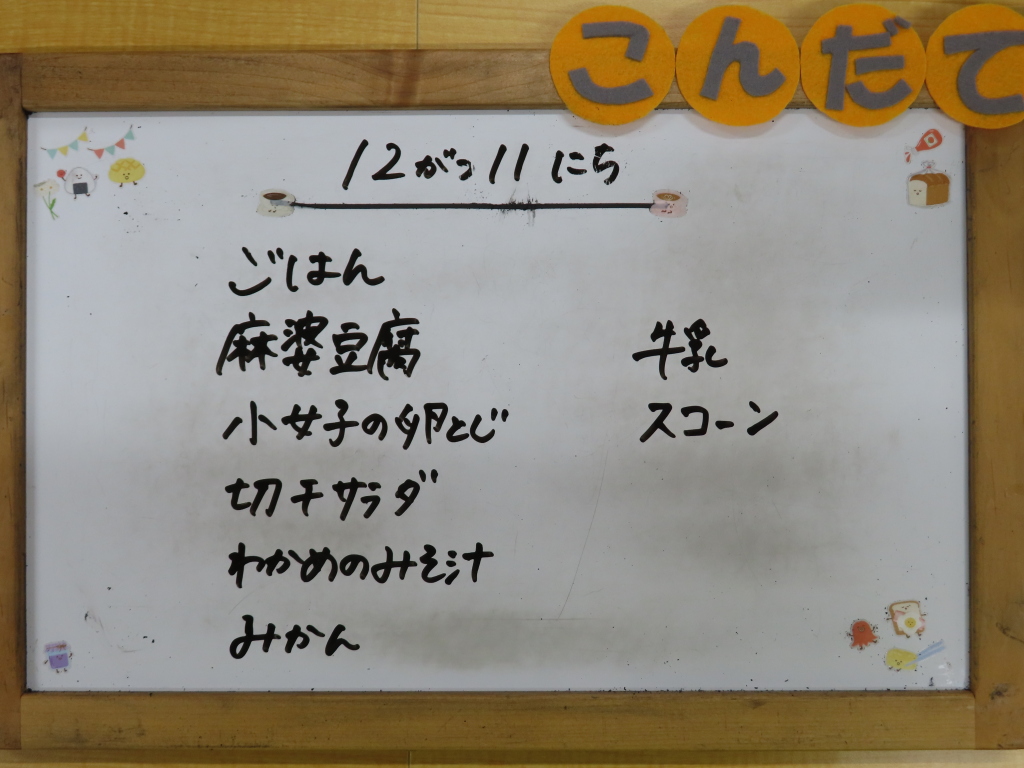 こんだて
12がつ11にち
ごはん
麻婆豆腐
小女子の卵とじ
切干サラダ
わかめのみそ汁
みかん
牛乳
スコーン